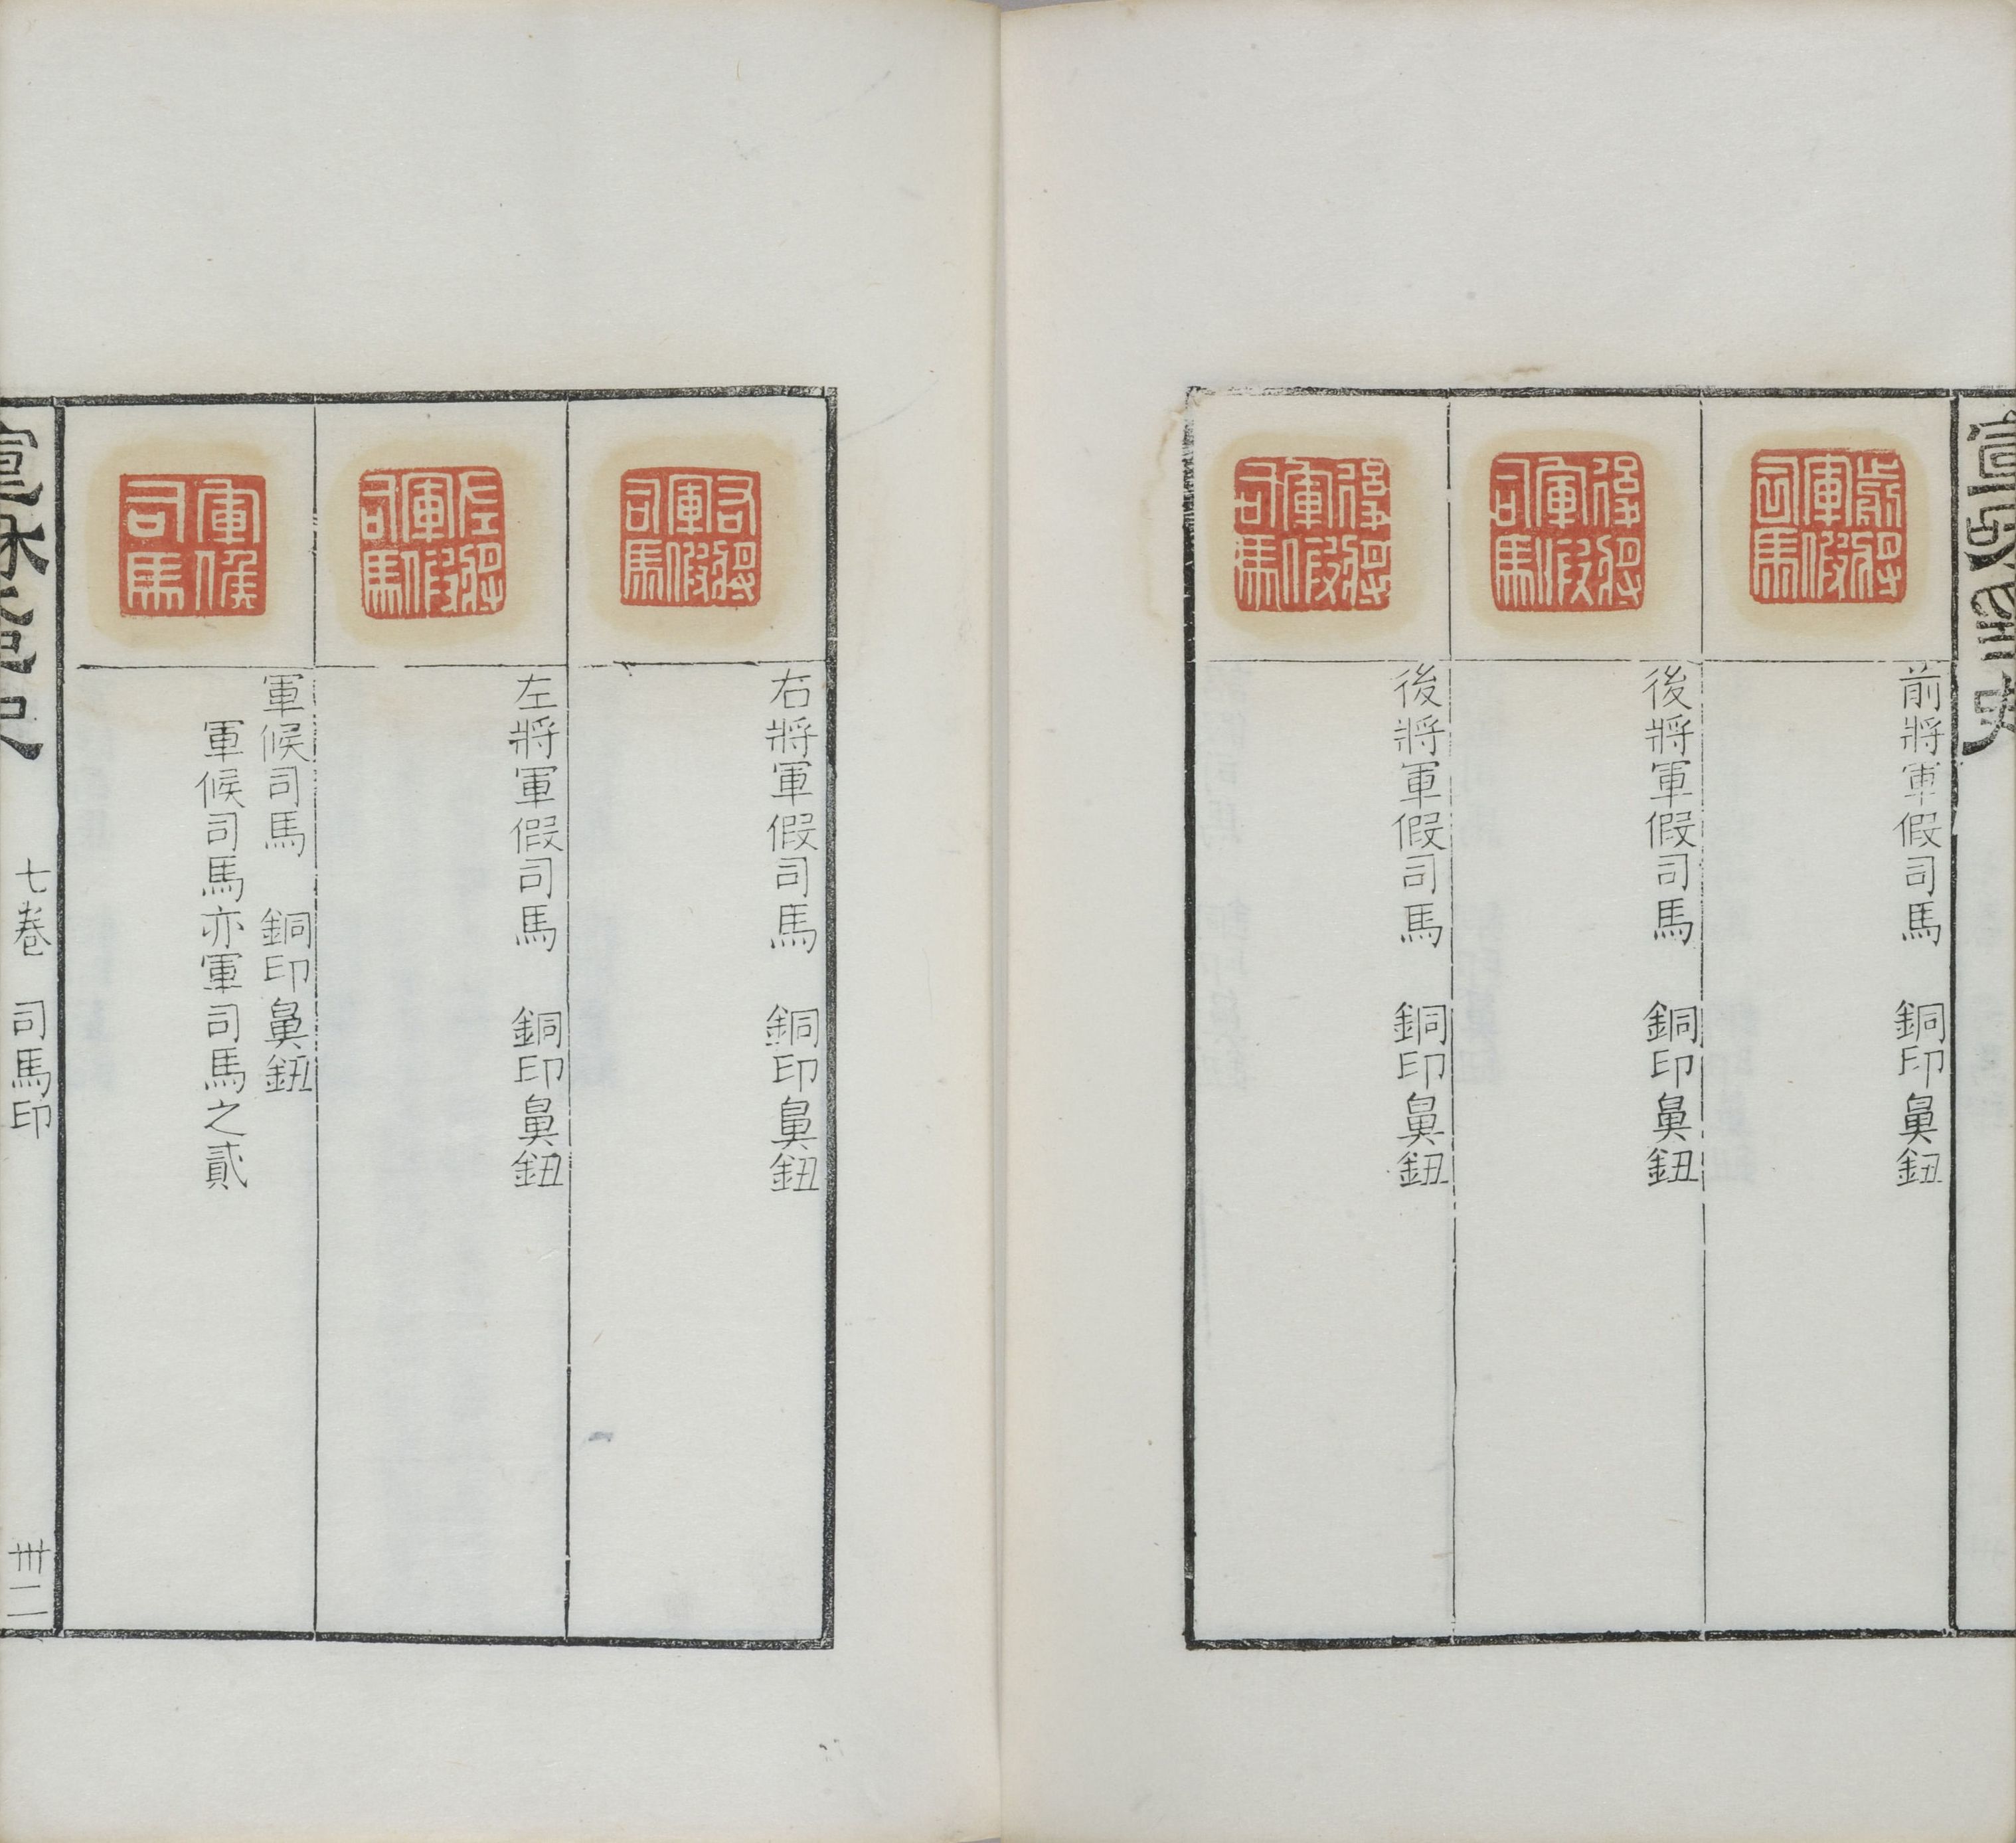 前將軍假司馬　銅印鼻鈕
後將軍假司馬　銅印鼻鈕
後將軍假司馬　銅印鼻鈕
右將軍假司馬　銅印鼻鈕
左將軍假司馬　銅印鼻鈕
軍候司馬　銅印鼻鈕
軍候司馬亦軍司馬之貳
七卷　司馬印
卌二
前將軍假司馬
後將軍假司馬
後將軍假司馬
右將軍假司馬
左將軍假司馬
軍候司馬